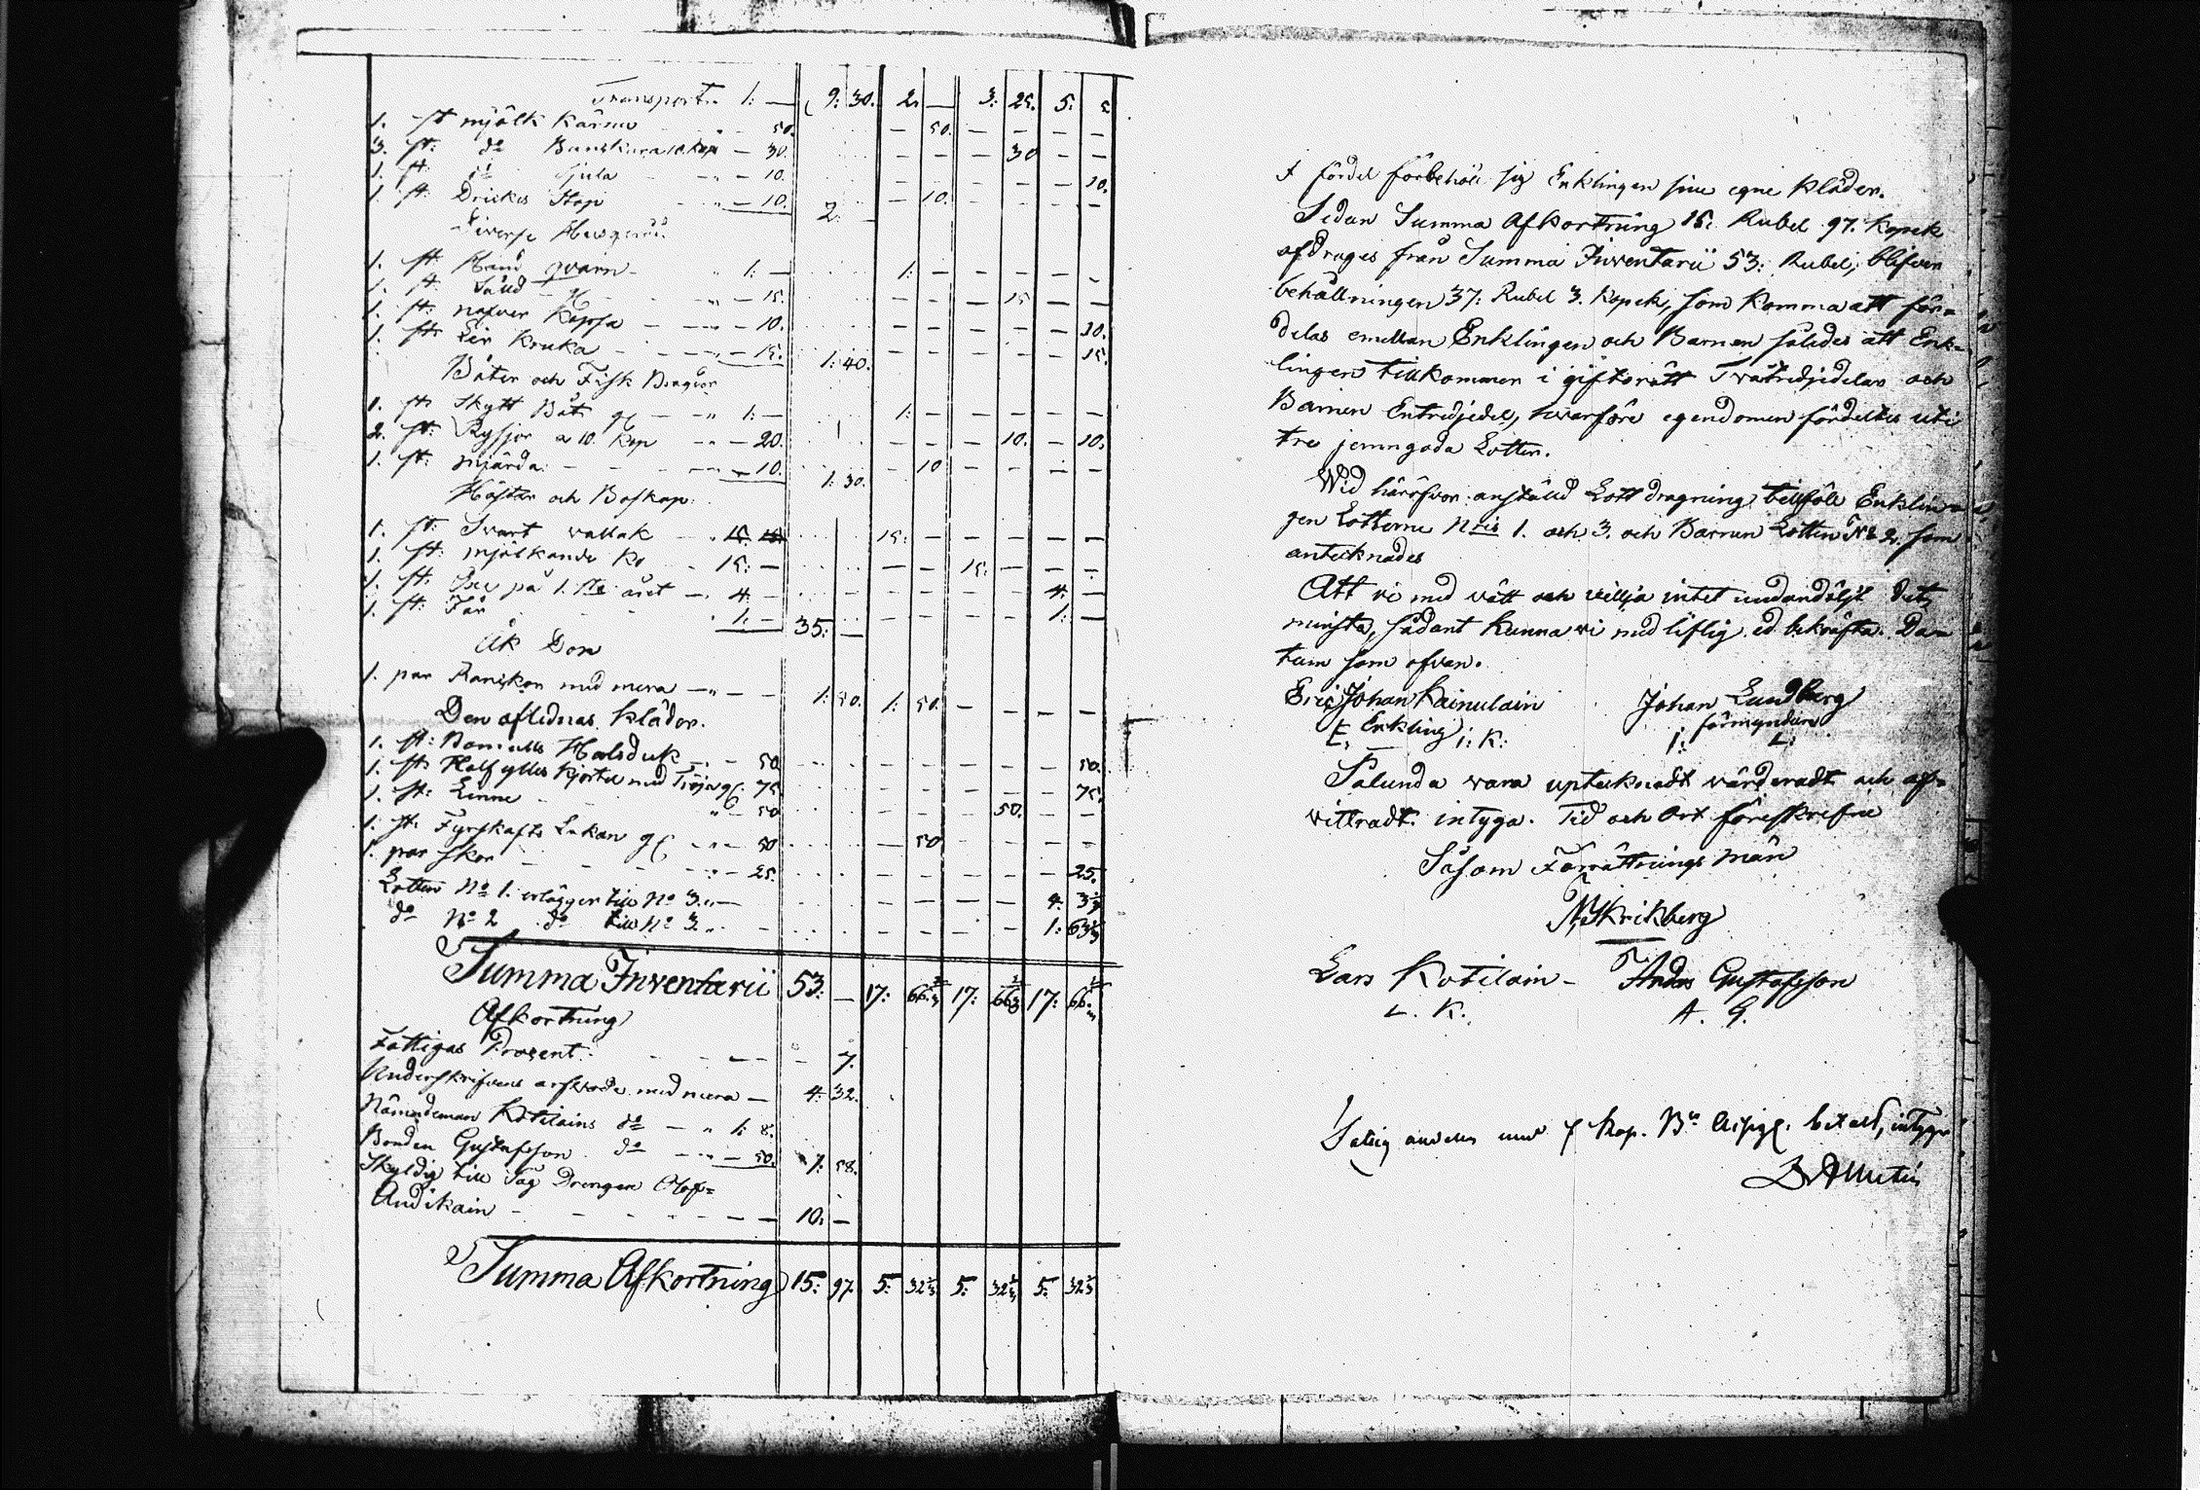 Transport 1: — 9: 30. 2. — 3: 25. 5. 5
1. st mjölk kärna - - 50. — 50. — — — —
3. st: do Bunkar a 10. kop — 30. — — — 30 — —
1. st: do Sjula — 10. — — — — — 10.
1. st: Drickes Stop — 10. 2. — — 10. — — — —
Diverse Husgeråd.
1. st Hand qvarn - 1: — 1: — — — — —
1. st. Såll g — 15. — — — 15 — —
1. st: näfver Kopsa — 10. — — — — — 10.
1. st: Ler Kruka — 15. 1: 40. — — — — — 15.
Båter och Fisk Bragder
1. st: Skytt Båt g — 1: — 1: — — — — —
2. st: Rysjor a 10. Kop — 20. — — — 10. — 10.
1. st: mjärda — 10. 1: 30. — 10 — — — —
Hästar och Boskap.
1. st: Svart wallak 15. — 15: — — — — —
1. st: mjölkande Ko 15: — — — 15: — — —
1. st. Oxe på 1. sta året — 4. — — — — — 4. —
1. st: Får 1: — 35: — — — — — 1: —
Åk Don
1. par Ranskor med mera — 1: 50. 1: 50. — — — —
Den aflidnas Kläder.
1. st: Bomulls Halsduk — 50 — — — — — 50.
1. st: Halfylles Kjortel med Tröja g. 75 — — — — — 75.
1. st: Linne — 50 — — — 50. — —
1. st. Fyrskafts Lakan g — 50 — 50 — — — —
1. par skor — 25. — — — — — 25.
Lotten No 1. erlägger till No 3. — — — — — 4. 3 1/3
do No 2 do till No 3. — — — — — 1: 63 1/3
Summa Inventarii 53: — 17: 66 2/3 17: 66 2/3 17: 66 2/3
Afkortning
Fattigas Procent — 7.
Underskrifvens arfvode med mera — 4: 32.
Nämndeman Kotilains do — 1: 8.
Bonden Gustafsson do — 50. 1: 58.
Skyldig till Drengen Olof
Audikain — 10. —
Summa Afkortning 15: 97. 5: 32 1/3 5: 32 1/3 5: 32 1/3
I fördel förbehöll sig Enklingen sine egne kläder.
Sedan Summa Afkortning 15: Rubel 97. kopek
afdrages från Summa Inventarii 53: Rubel; blifver
behållningen 37: Rubel 3. Kopek, som komma att för=
delas emellan Enklingen och Barnen således att Enk=
lingen tillkommer i giftorätt Tvåtredjedelar och
Barnen Entredjedel, hvarföre egendomen fördeltes uti
tre jemngoda Lotter.
Wid häröfver anställd Lottdragning tillföll Enklin=
gen Lotterne Nris 1. och 3. och Barnen Lotten No 2. som
antecknades
Att vi med vätt och vilja intet undandöljt det
minsta, sådant kunna vi med liflig ed bekräfta. Da=
tum som ofvan.
Eric Johan Kainulain Johan Lundberg
Enkling förmyndare
E. i: K: i: L:
Sålunda vara upteknadt värderadt och af=
vittradt intyga. Tid och Ort föreskrefne
Såsom Förrättnings Män
N. Skrikberg
Lars Kotilain — Anders Gustafsson
L. K. A. G.
Fattig andelen med 7 Kop. Bco betald, intygar